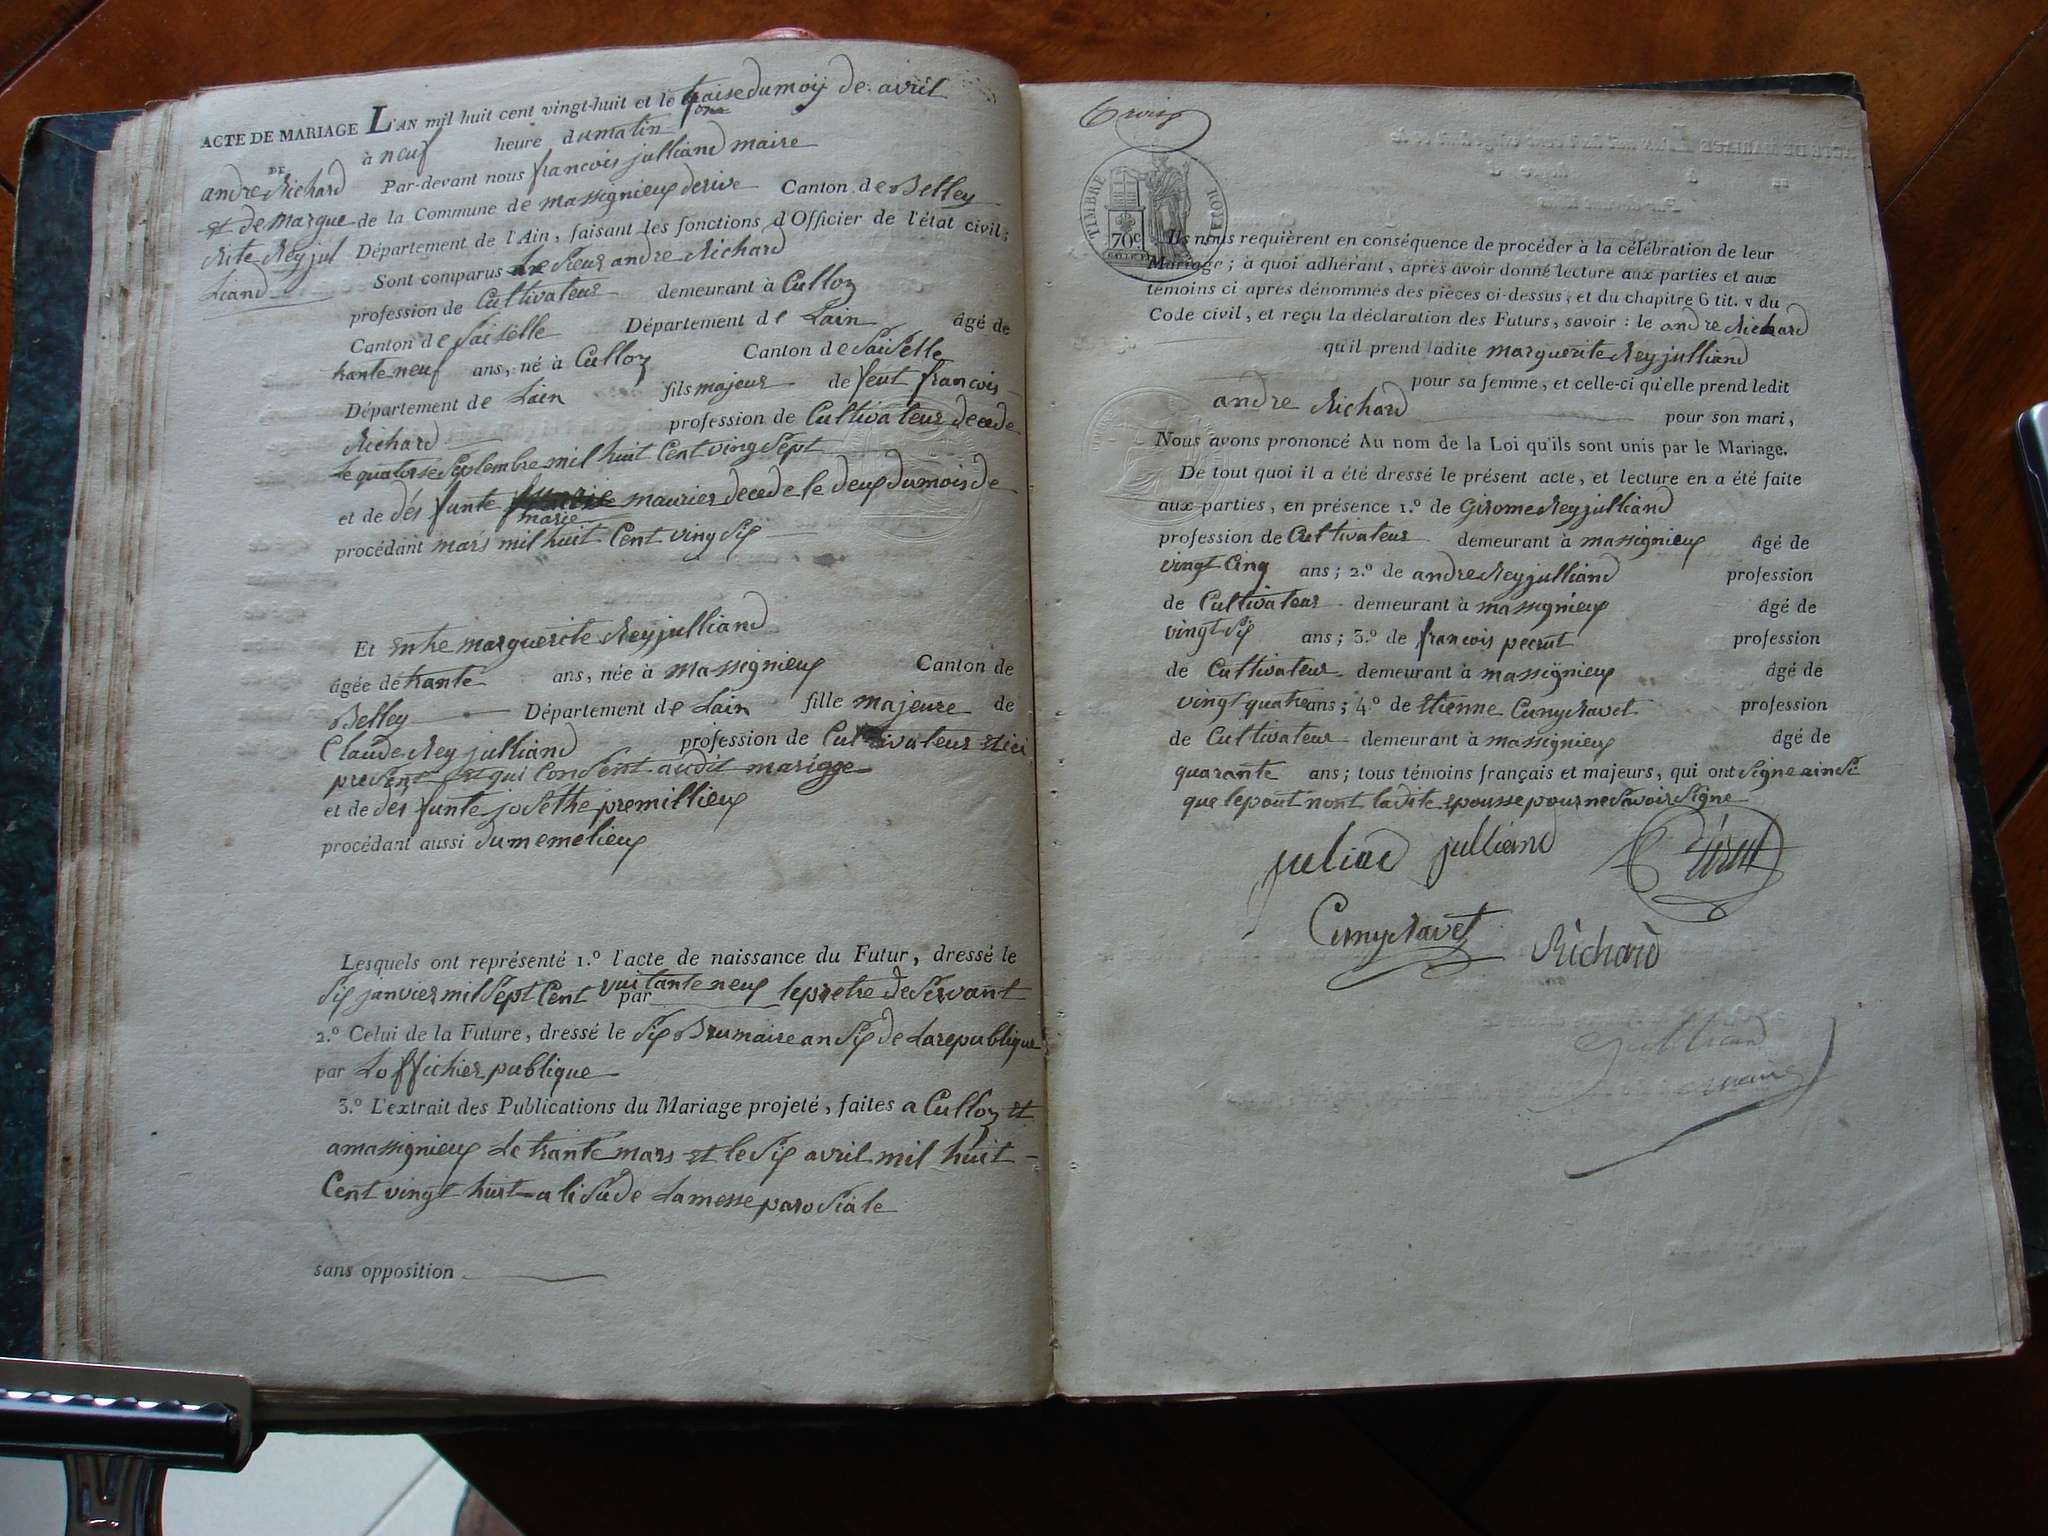 ACTE DE MARIAGE L'AN mil huit cent vingt-huit et le traise du moy de avril
à neuf heure du matin
DE
andre Richard Par-devant nous francois julliand maire
et de Margue de la Commune de massignieux derive Canton de Belley
Rite Reyjul Département de l'Ain, faisant les fonctions d'Officier de l'état civil;
Liand Sont comparus Sieur andre Richard
profession de Cultivateur demeurant à Culloz
Canton de Saiselle Département de Lain âgé de
trante neuf ans, né à Culloz Canton de Saiselle
Département de Lain fils majeur de feut francois
Richard profession de Cultivateur decede
le quatorse Septembre mil huit Cent ving Sept
et de défunte maurier decede le deux du mois de
marie
procédant mars mil huit Cent ving Six
Et entre marguerite Reyjulliand
âgée de trante ans, née à massignieux Canton de
Belley Département de Lain fille majeure de
Claude Rey julliand profession de Cultivateur et ici
present et qui Consent audit mariage
et de défunte josethe premillieux
procédant aussi du meme lieux
Lesquels ont représenté 1.º l'acte de naissance du Futur, dressé le
Six janvier mil Sept Cent vuitante neuf par le pretre deServant
2.º Celui de la Future, dressé le Six Brumaire an Six de La republique
par Loffichier publique
3.º L'extrait des Publications du Mariage projeté, faites a Culloz et
a massignieux Le trante mars et le Six avril mil huit
Cent vingt huit a liSude La messe paroSiale
sans opposition
trois
TIMBRE ROYAL
70c
Ils nous requièrent en conséquence de procéder à la célébration de leur
Mariage; à quoi adhérant, après avoir donné lecture aux parties et aux
témoins ci après dénommés des pièces ci-dessus, et du chapitre 6 tit. v du
Code civil, et reçu la déclaration des Futurs, savoir : le andre Richard
qu'il prend ladite marguerite Rey julliand
pour sa femme, et celle-ci qu'elle prend ledit
andre Richard pour son mari,
Nous avons prononcé Au nom de la Loi qu'ils sont unis par le Mariage.
De tout quoi il a été dressé le présent acte, et lecture en a été faite
aux parties, en présence 1.º de Girome Reyjulliand
profession de Cultivateur demeurant à massignieux âgé de
vingt Cinq ans; 2.º de andre Reyjulliand profession
de Cultivateur demeurant à massignieux âgé de
vingt Six ans; 3.º de francois pecrut profession
de Cultivateur demeurant à massignieux âgé de
vingt quatre ans; 4.º de Etienne Cuny Ravet profession
de Cultivateur demeurant à massignieux âgé de
quarante ans; tous témoins français et majeurs, qui ont Signe ainSi
que lepout nont la dite epousse pour ne Savoir Signe
juliad julliand
Cuny Ravet Richard
julliand
maire